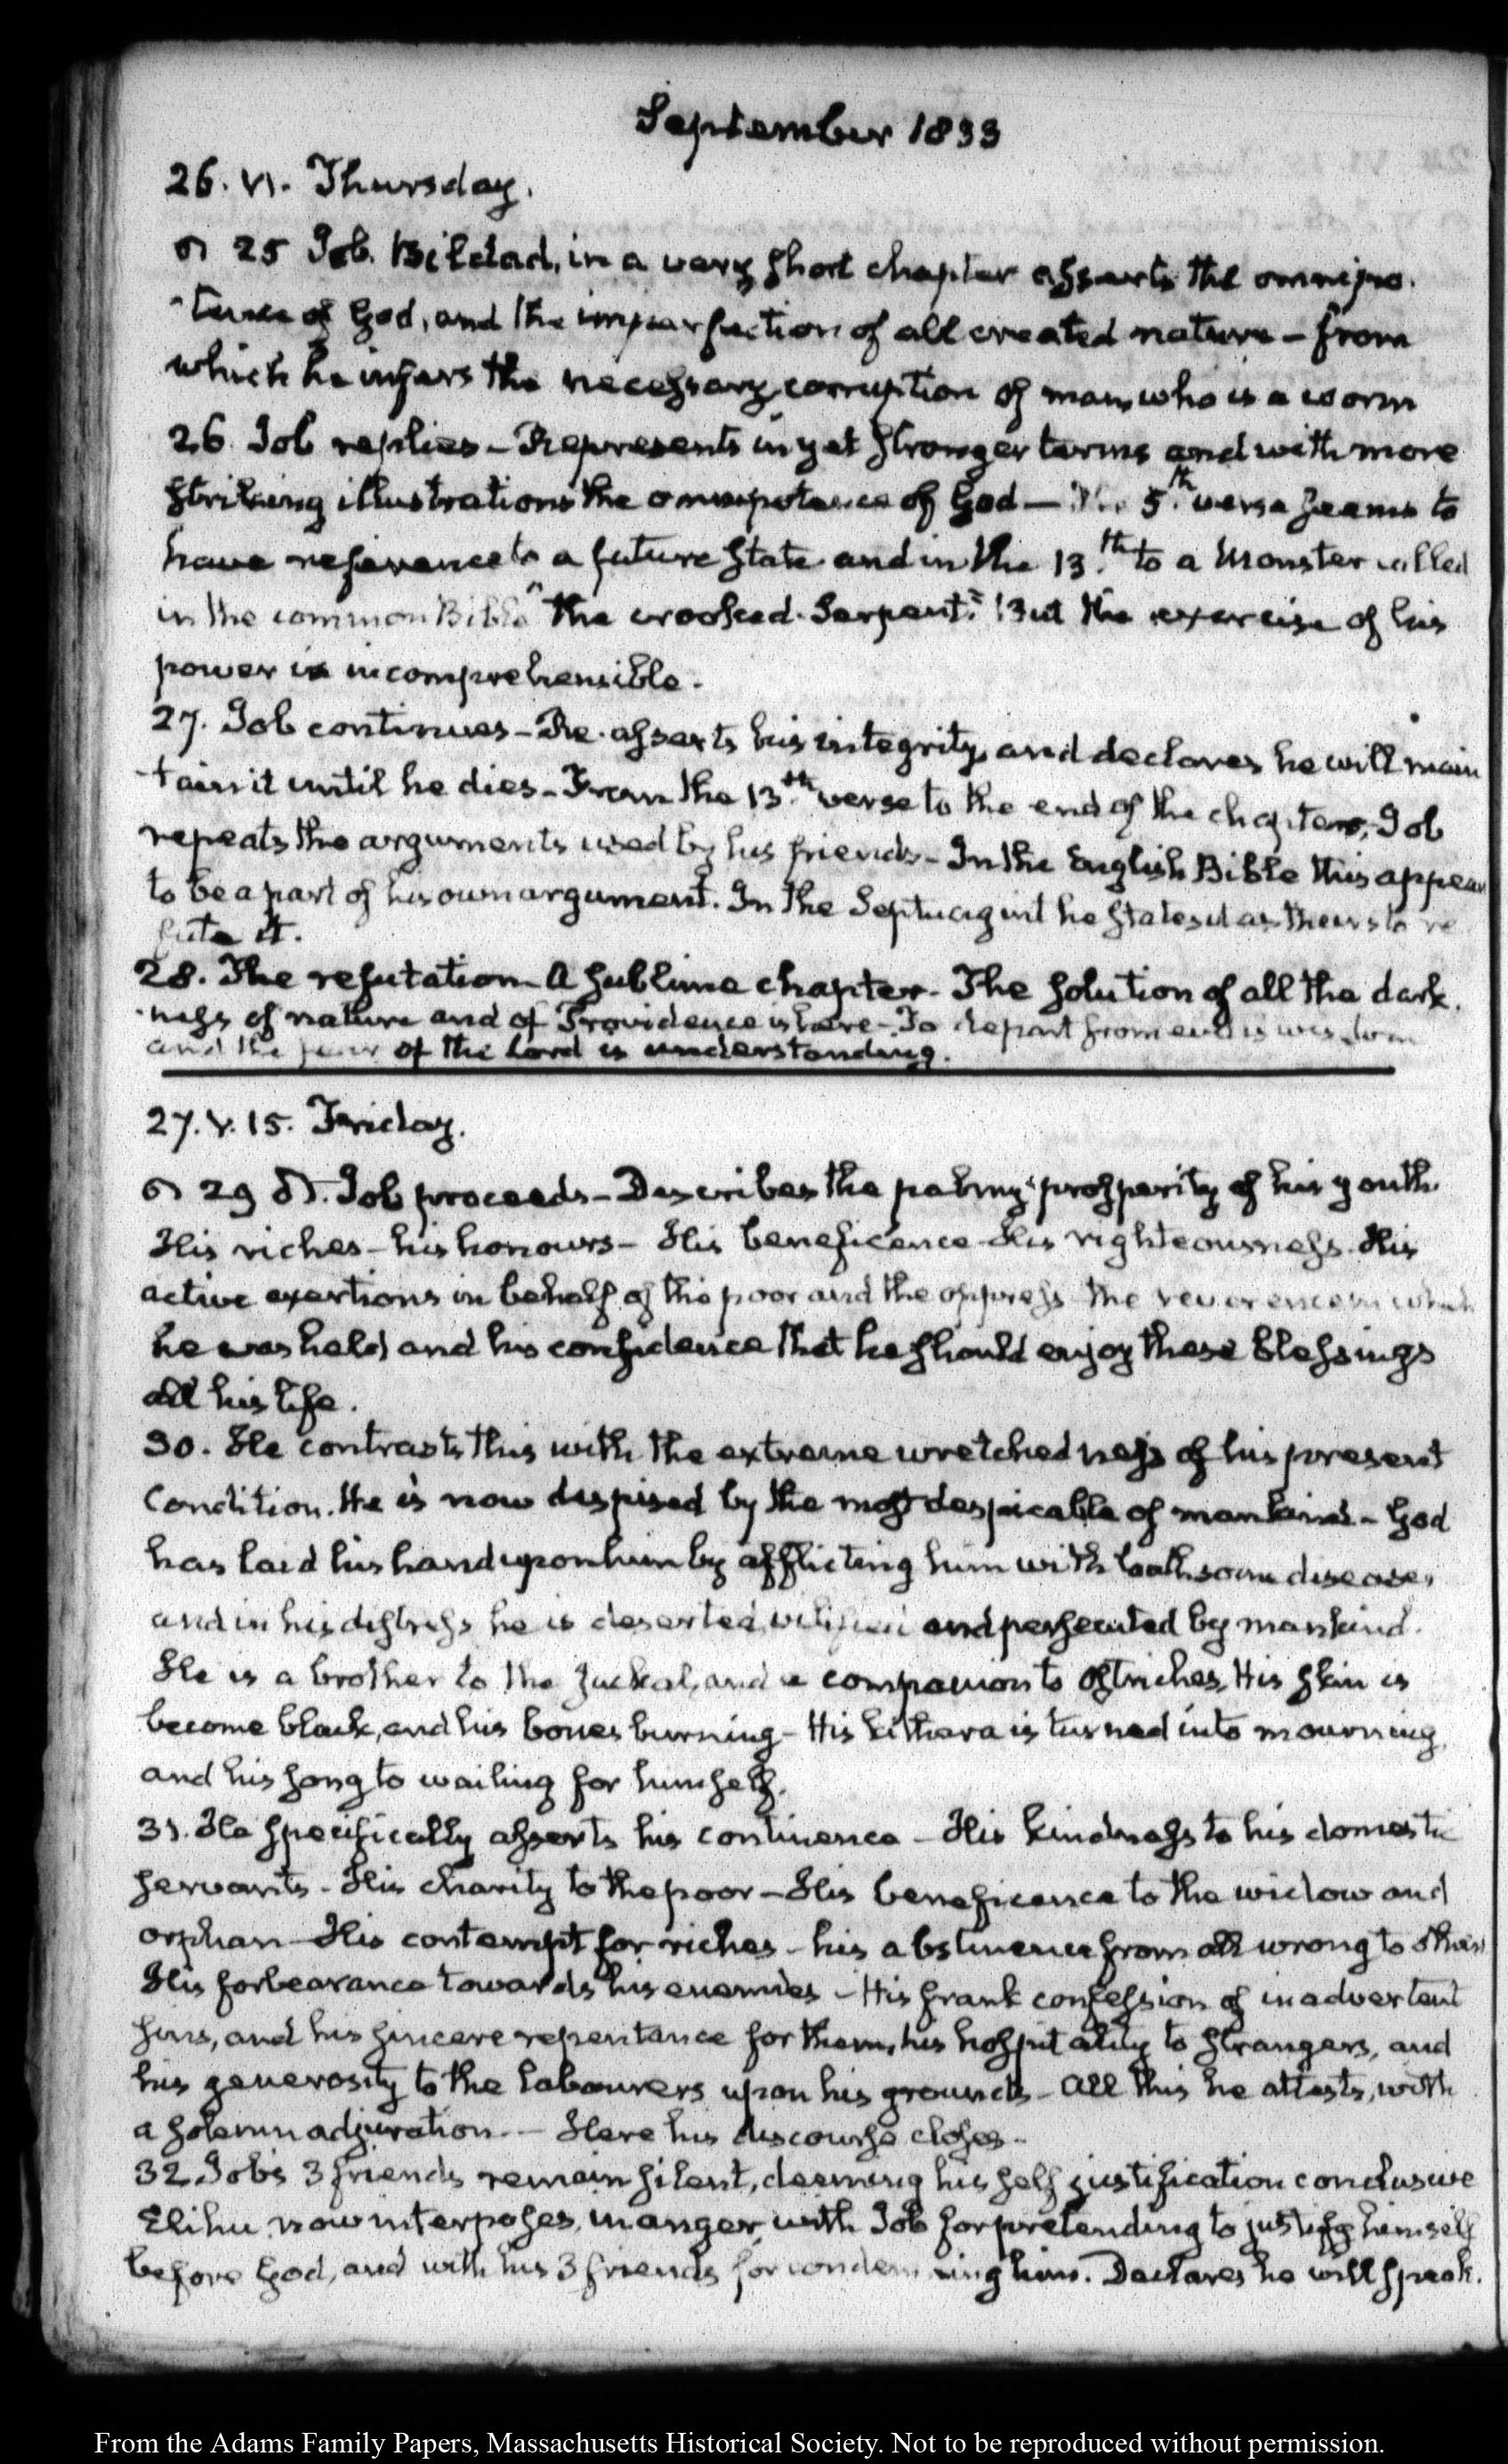 September 1833
26. VI. Thursday.
25 Job. Bildad, in a very short chapter asserts the omnipo-
-tence of God, and the imperfection of all created nature - from
which he infers the necessary corruption of man, who is a worm
26. Job replies - Represents in yet stronger terms and with more
striking illustrations the omnipotence of God — The 5.th verse seems to
have reference to a future state and in the 13.th to a Monster called
in the common Bible "the crooked Serpent." But the exercise of his
power is incomprehensible.
27. Job continues - Re-asserts his integrity, and declares he will main
-tain it until he dies - From the 13.th verse to the end of the chapter, Job
repeats the arguments used by his friends - In the English Bible this appears
to be a part of his own argument. In the Septuagint he states it as theirs to re
fute it.
28. The refutation - A sublime chapter - The solution of all the dark-
-ness of nature and of Providence is here - To depart from evil is wisdom
and the fear of the Lord is understanding.
27. V. 15. Friday.
29 Job proceeds - Describes the palmy prosperity of his youth
His riches - his honours - His beneficence - His righteousness - His
active exertions in behalf of the poor and the oppress the reverence in which
he was held and his confidence that he should enjoy these blessings
all his life.
30. He contrasts this with the extreme wretchedness of his present
Condition. He is now despised by the most despicable of mankind - God
has laid his hand upon him by afflicting him with loathsome disease,
and in his distress he is deserted, vilified and persecuted by mankind.
He is a brother to the Jackal, and a companion to ostriches, His skin is
become black, and his bones burning - His kithara is turned into mourning,
and his song to wailing for himself.
31. He specifically asserts his continence - His kindness to his domestic
servants - His charity to the poor - His beneficence to the widow and
orphan - His contempt for riches - his abstinence from all wrong to others
His forbearance towards his enemies - His frank confession of inadvertent
sins, and his sincere repentance for them, his hospitality to strangers, and
his generosity to the labourers upon his grounds - All this he attests, with
a solemn adjuration. - Here his discourse closes -
32 Job's 3 friends remain silent, deeming his self justification conclusive
Elihu now interposes, in anger with Job for pretending to justify himself
before God, and with his 3 friends for condemning him. Declares he will speak.
From the Adams Family Papers, Massachusetts Historical Society. Not to be reproduced without permission.